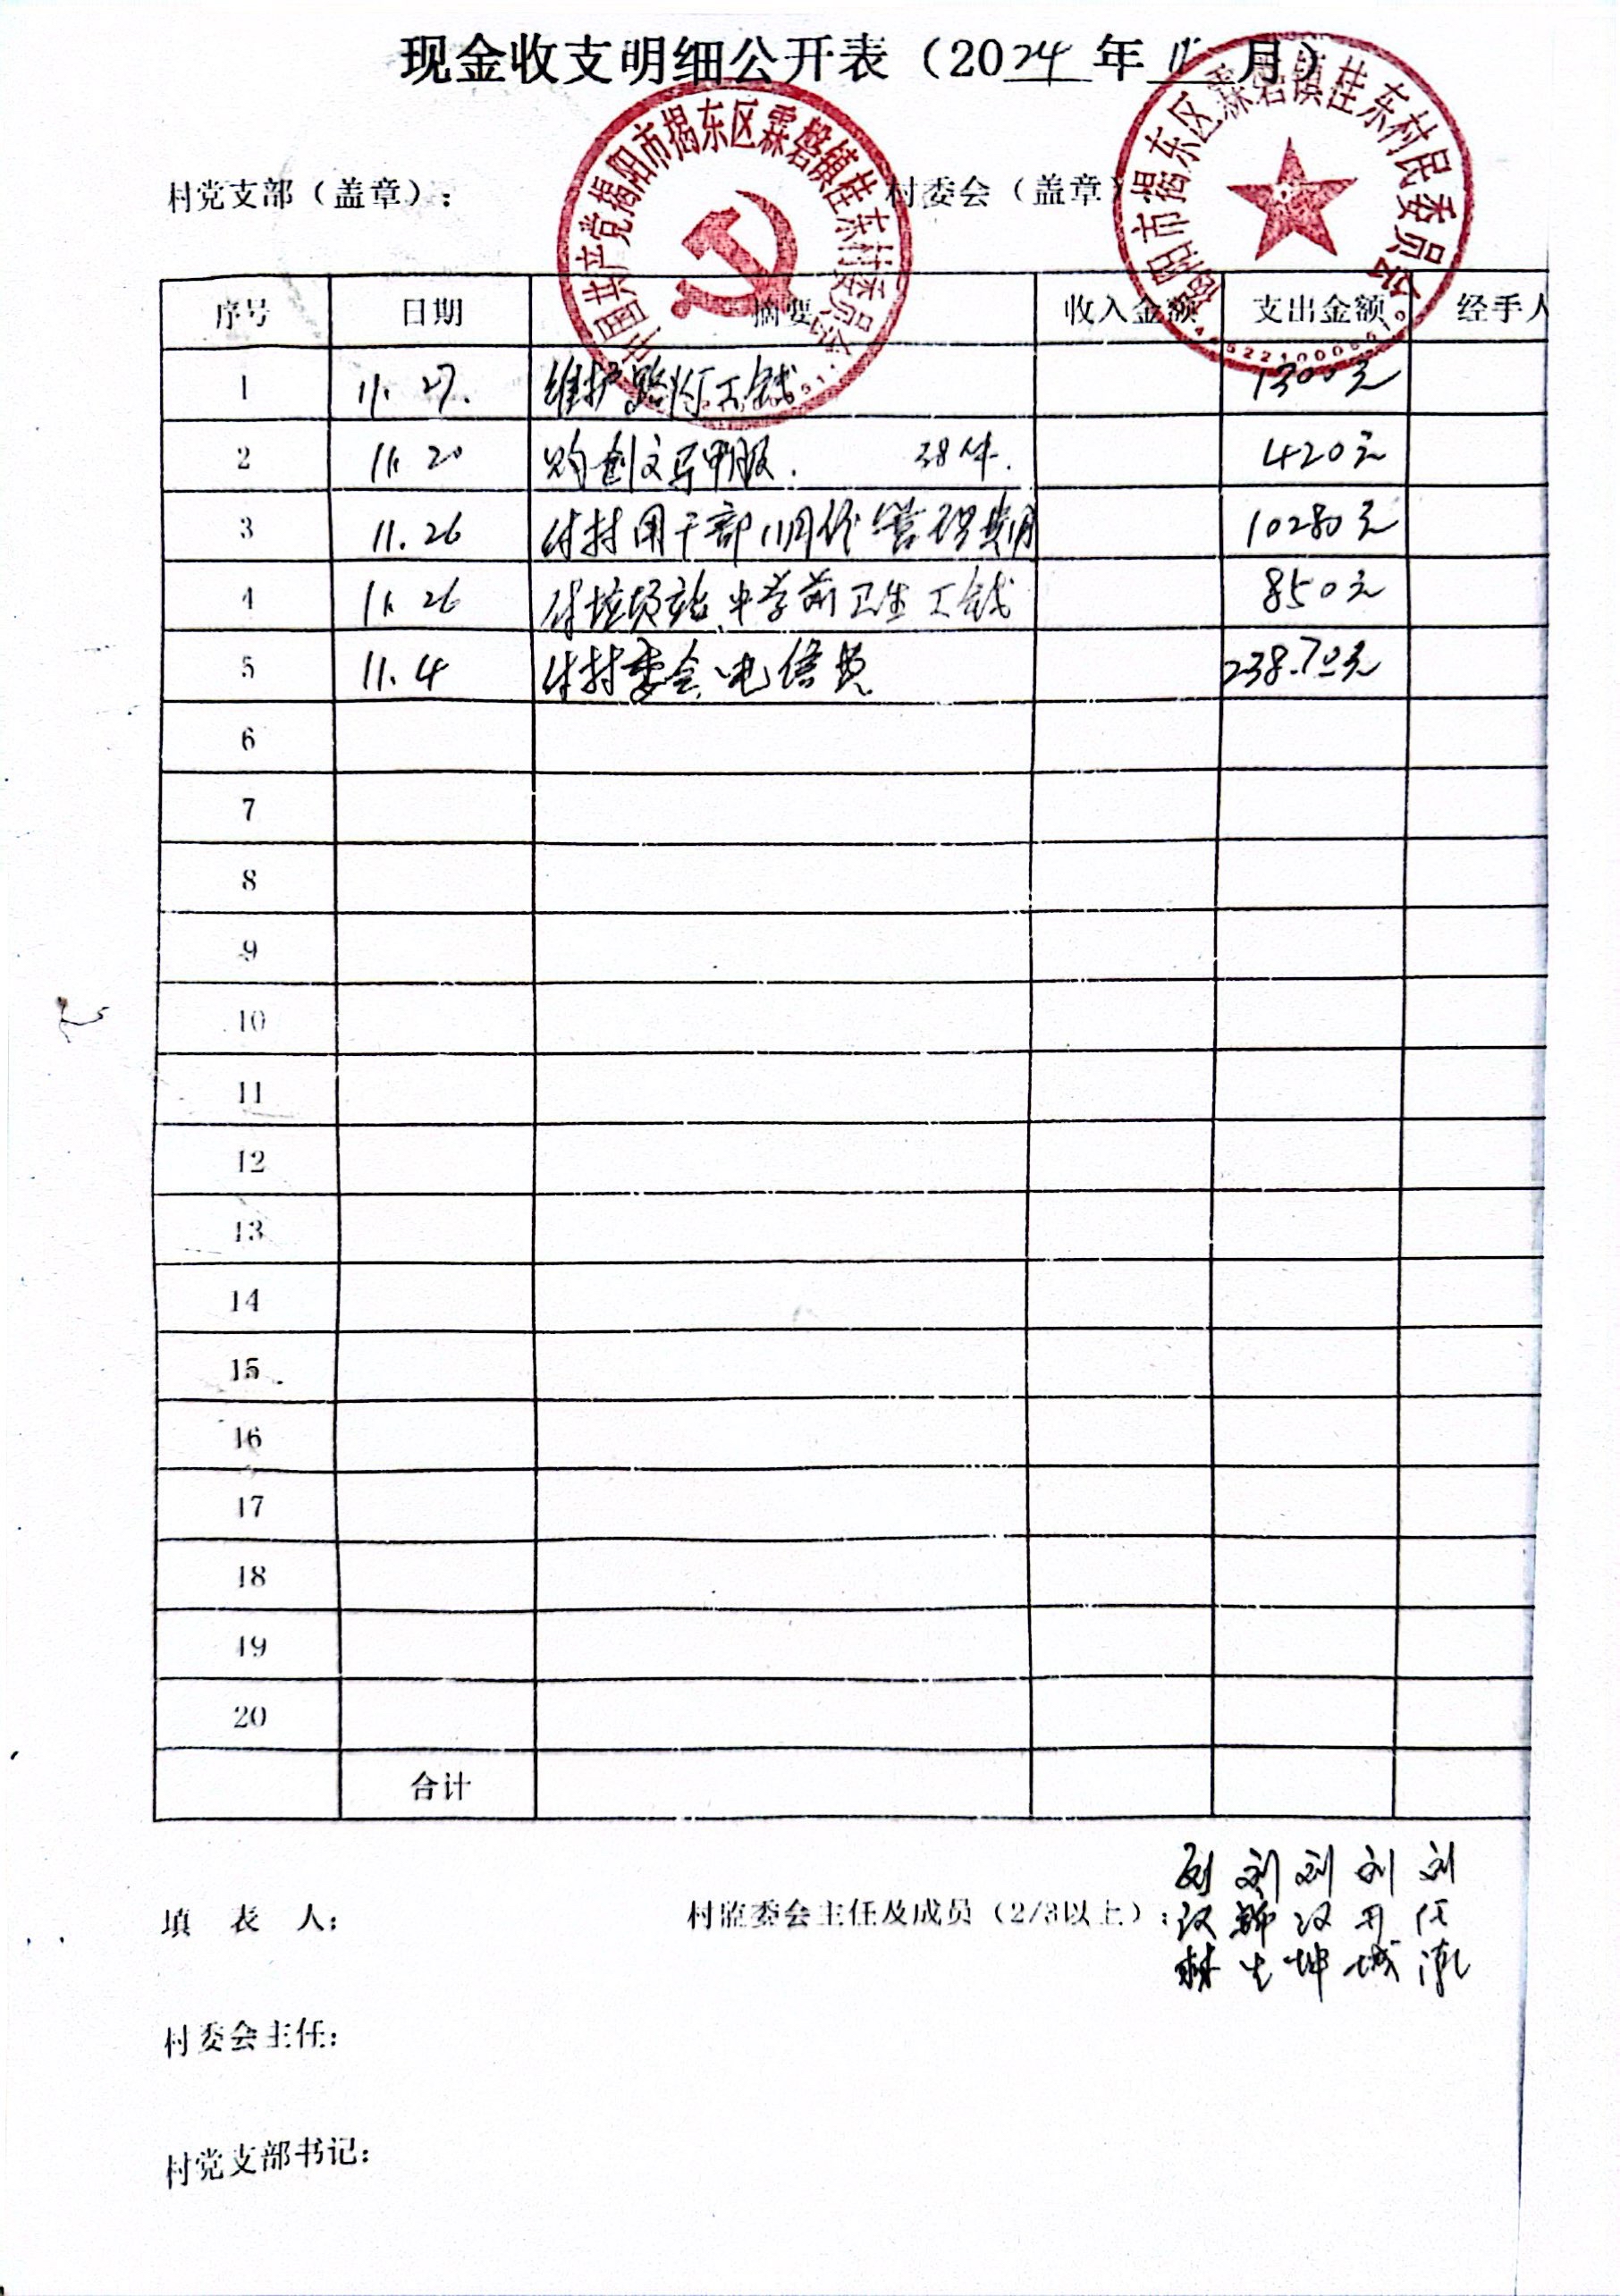 现金收支明细公开表（2024年11月）
村党支部（盖章）：
中国共产党揭阳市揭东区霖磐镇桂东村委员会
村委会（盖章）
揭阳市揭东区霖磐镇桂东村民委员会
序号 日期 摘要 收入金额 支出金额 经手人
1 11.27. 维护路灯工钱 1300元
2 11.20 购创文马甲服. 38件. 420元
3 11.26 付村用干部11月份 10280元
4 11.26 付垃圾站、中学前卫生工钱 850元
5 11.4 付村委会电信费 238.70元
6
7
8
9
10
11
12
13
14
15
16
17
18
19
20
合计
填 表 人：
村监委会主任及成员（2/3以上）：刘汉林 刘 生 刘汉坤 刘 城 刘
村委会主任：
村党支部书记：